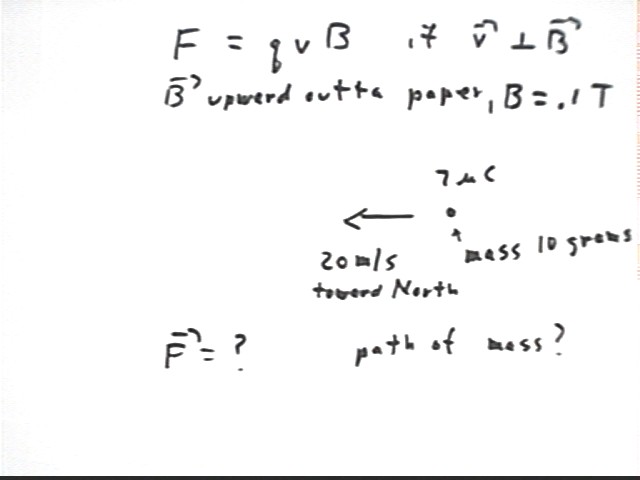 F = qvB if v⃗ ⊥ B⃗
B⃗ upward outta paper, B = .1 T
7 μC
mass 10 grams
20 m/s
toward North
F⃗ = ? path of mass?